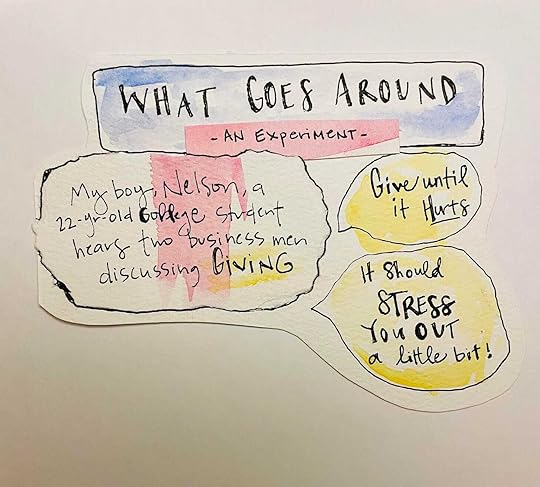 WHAT GOES AROUND
- AN EXPERIMENT -
My boy, Nelson, a
22-yr-old College student
hears two business men
discussing GIVING
Give until
it Hurts
It Should
STRESS
YOU OUT
a little bit!